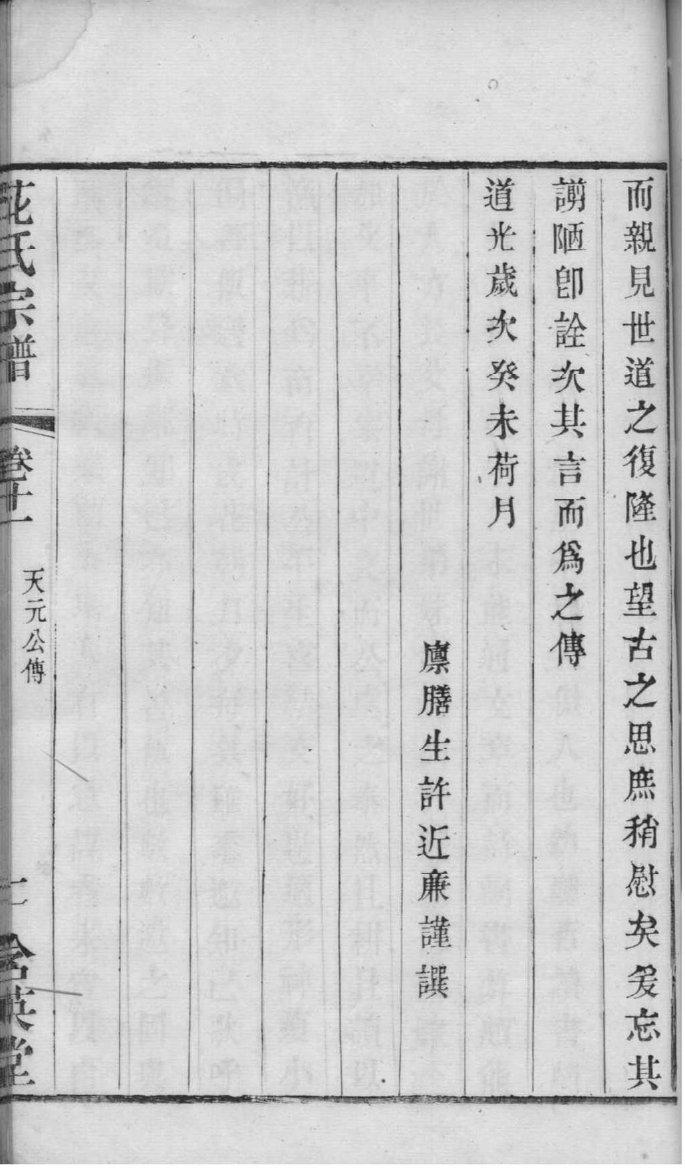 而親見世道之復隆也望古之思庶稍慰矣爰忘其
謭陋卽詮次其言而爲之傳
道光歲次癸未荷月
廪膳生許近亷謹譔
氏宗譜
卷十一
天元公傳
二
含英堂